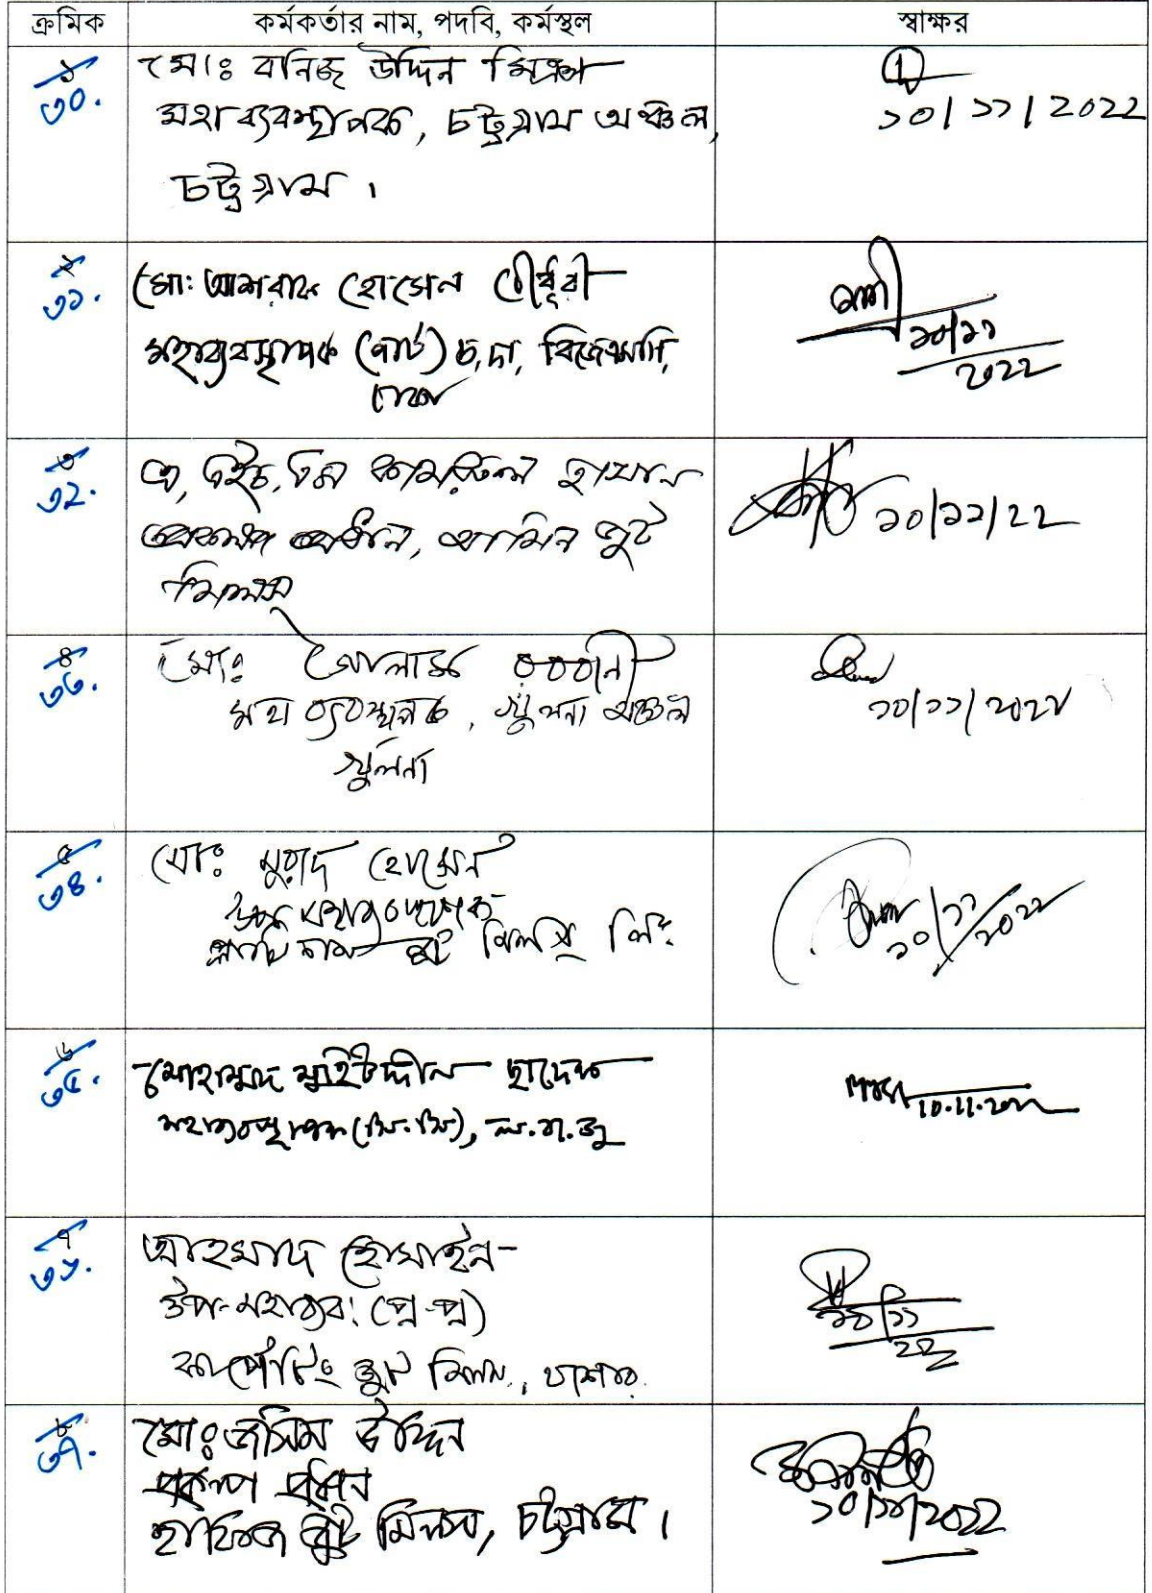 ক্রমিক কর্মকর্তার নাম, পদবি, কর্মস্থল স্বাক্ষর
১
৩০.
মোঃ বনিজ উদ্দিন মিঞা
মহাব্যবস্থাপক, চট্টগ্রাম অঞ্চল,
চট্টগ্রাম।
১০/১১/2022
২
৩১.
মোঃ আশরাফ হোসেন চৌধুরী
মহাব্যবস্থাপক (পাট) চ,দা, বিজেএমসি,
ঢাকা
১০/১১
২০২২
৩
৩২.
এ, এইচ, এম কামরুল হাসান
প্রকল্প প্রধান, আমিন জুট
মিলস্
১০/১১/২২
৪
৩৩.
মোঃ গোলাম রব্বানী
মহাব্যবস্থাপক, খুলনা অঞ্চল
খুলনা
১০/১১/২০২২
৫
৩৪.
মোঃ মুরাদ হোসেন
উপ মহাব্যবস্থাপক
প্লাটিনাম জুট মিলস্ লিঃ
১০/১১/২০২২
৬
৩৫.
মোহাম্মদ মুহিউদ্দীন
মহাব্যবস্থাপক
10.11.২০২২
৭
৩৬.
আহমাদ হোসাইন
উপ-মহাব্যব:
কার্পেটিং জুট মিলস, যশোর
১০/১১
২২
৮
৩৭.
মোঃ জসিম উদ্দিন
প্রকল্প প্রধান
হাফিজ জুট মিলস, চট্টগ্রাম।
১০/১১/২০২২